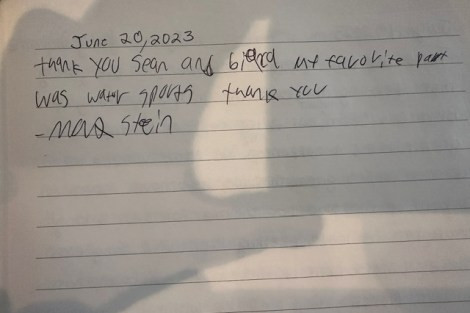 June 20, 2023
thank you Sean and my favorite part
was water sports thank you
- Max Stein